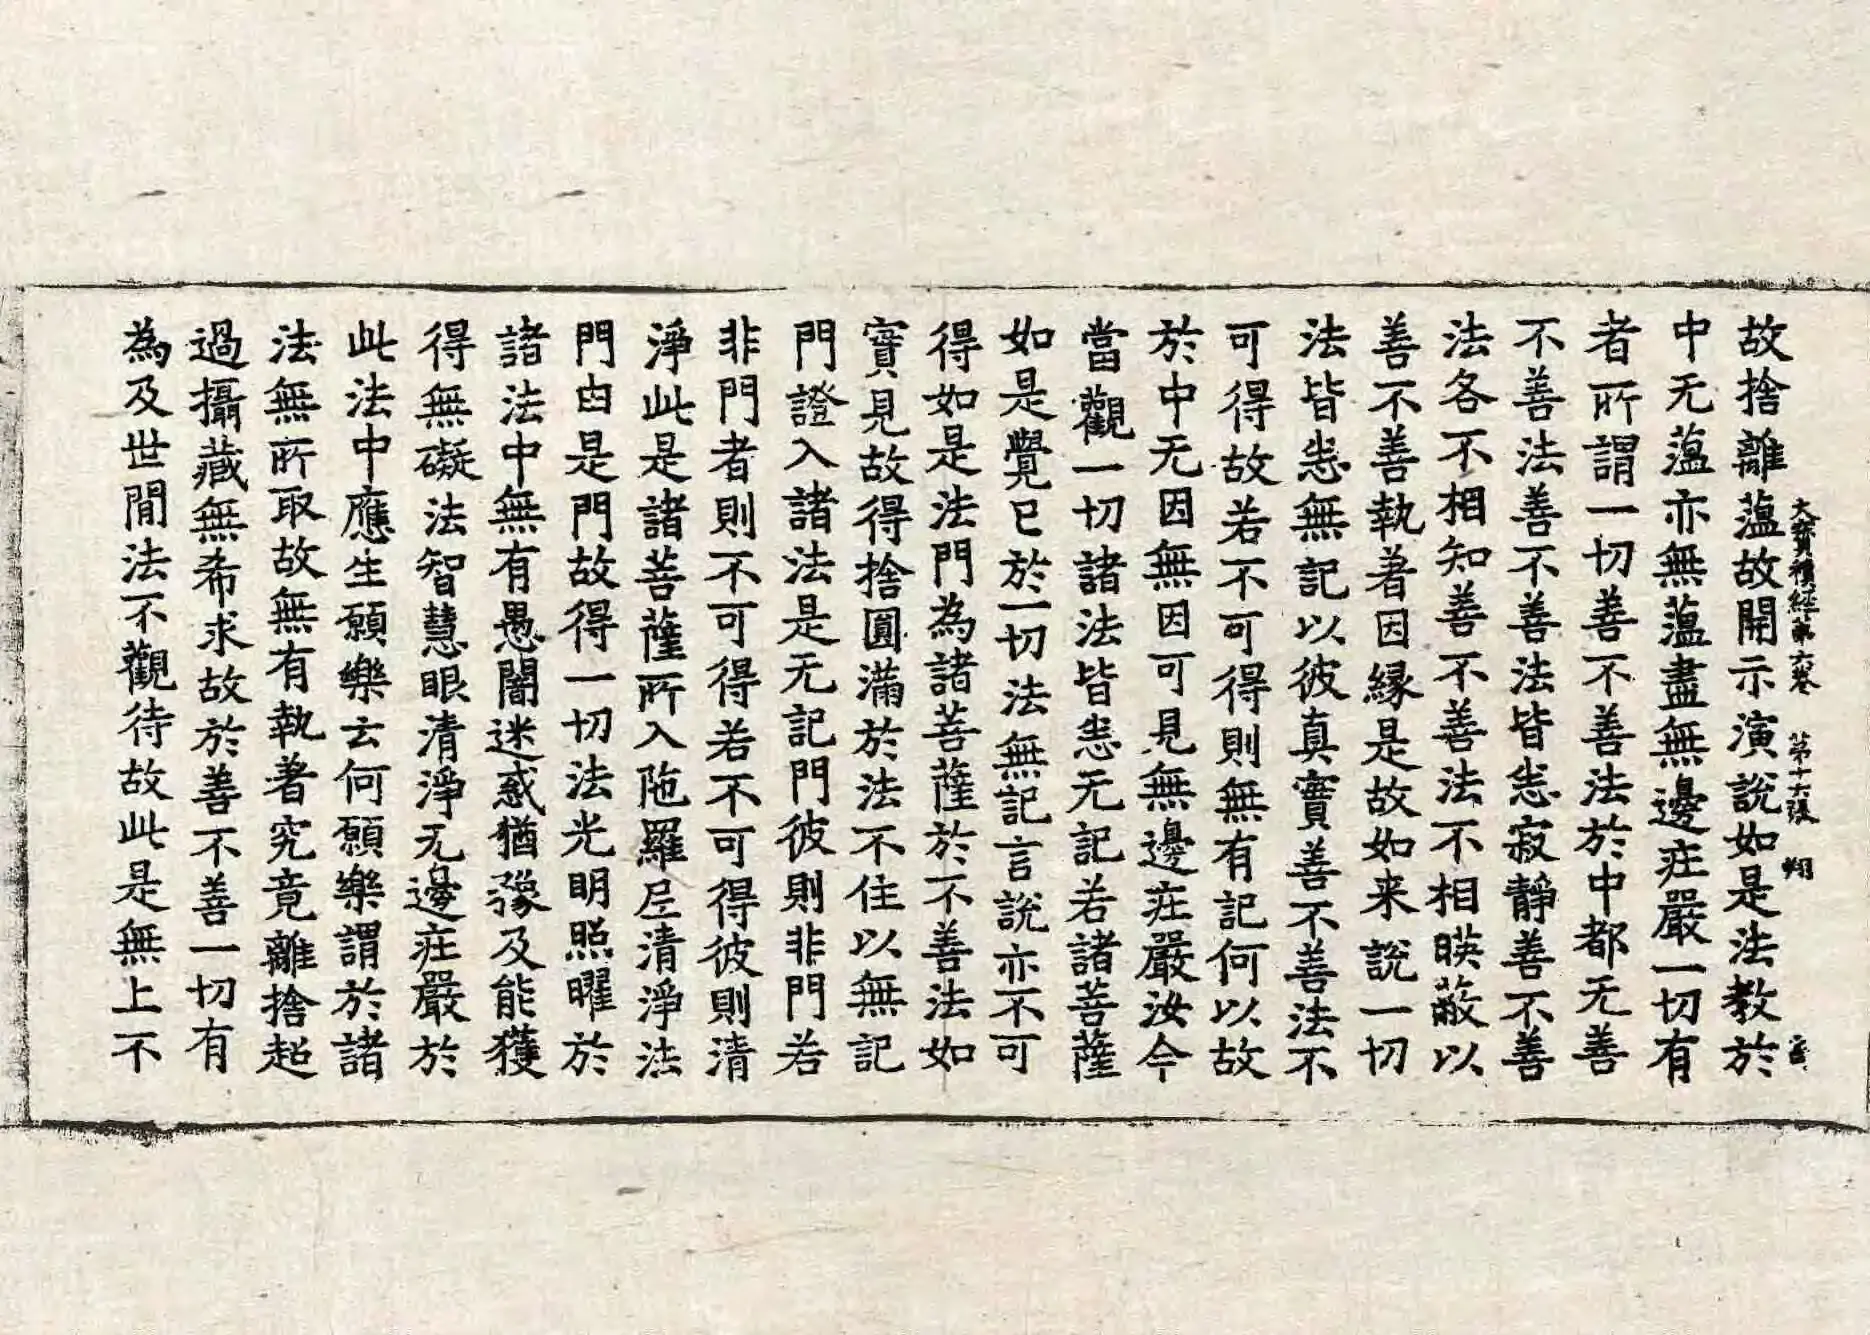 大寶積經第六卷 第十六張 翔
故捨離薀故開示演說如是法教於
中无薀亦無薀盡無邊疘嚴一切有
者所謂一切善不善法於中都无善
不善法善不善法皆悉寂靜善不善
法各不相知善不善法不相暎蔽以
善不善執著因緣是故如来說一切
法皆悉無記以彼真實善不善法不
可得故若不可得則無有記何以故
於中无因無因可見無邊疘嚴汝今
當觀一切諸法皆悉无記若諸菩薩
如是覺已於一切法無記言說亦不可
得如是法門為諸菩薩於不善法如
實見故得捨圓滿於法不住以無記
門證入諸法是无記門彼則非門若
非門者則不可得若不可得彼則清
淨此是諸菩薩所入陁羅尼清淨法
門由是門故得一切法光明照曜於
諸法中無有愚闇迷惑猶豫及能獲
得無礙法智慧眼清淨无邊疘嚴於
此法中應生願樂云何願樂謂於諸
法無所取故無有執著究竟離捨超
過攝藏無希求故於善不善一切有
為及世間法不觀待故此是無上不